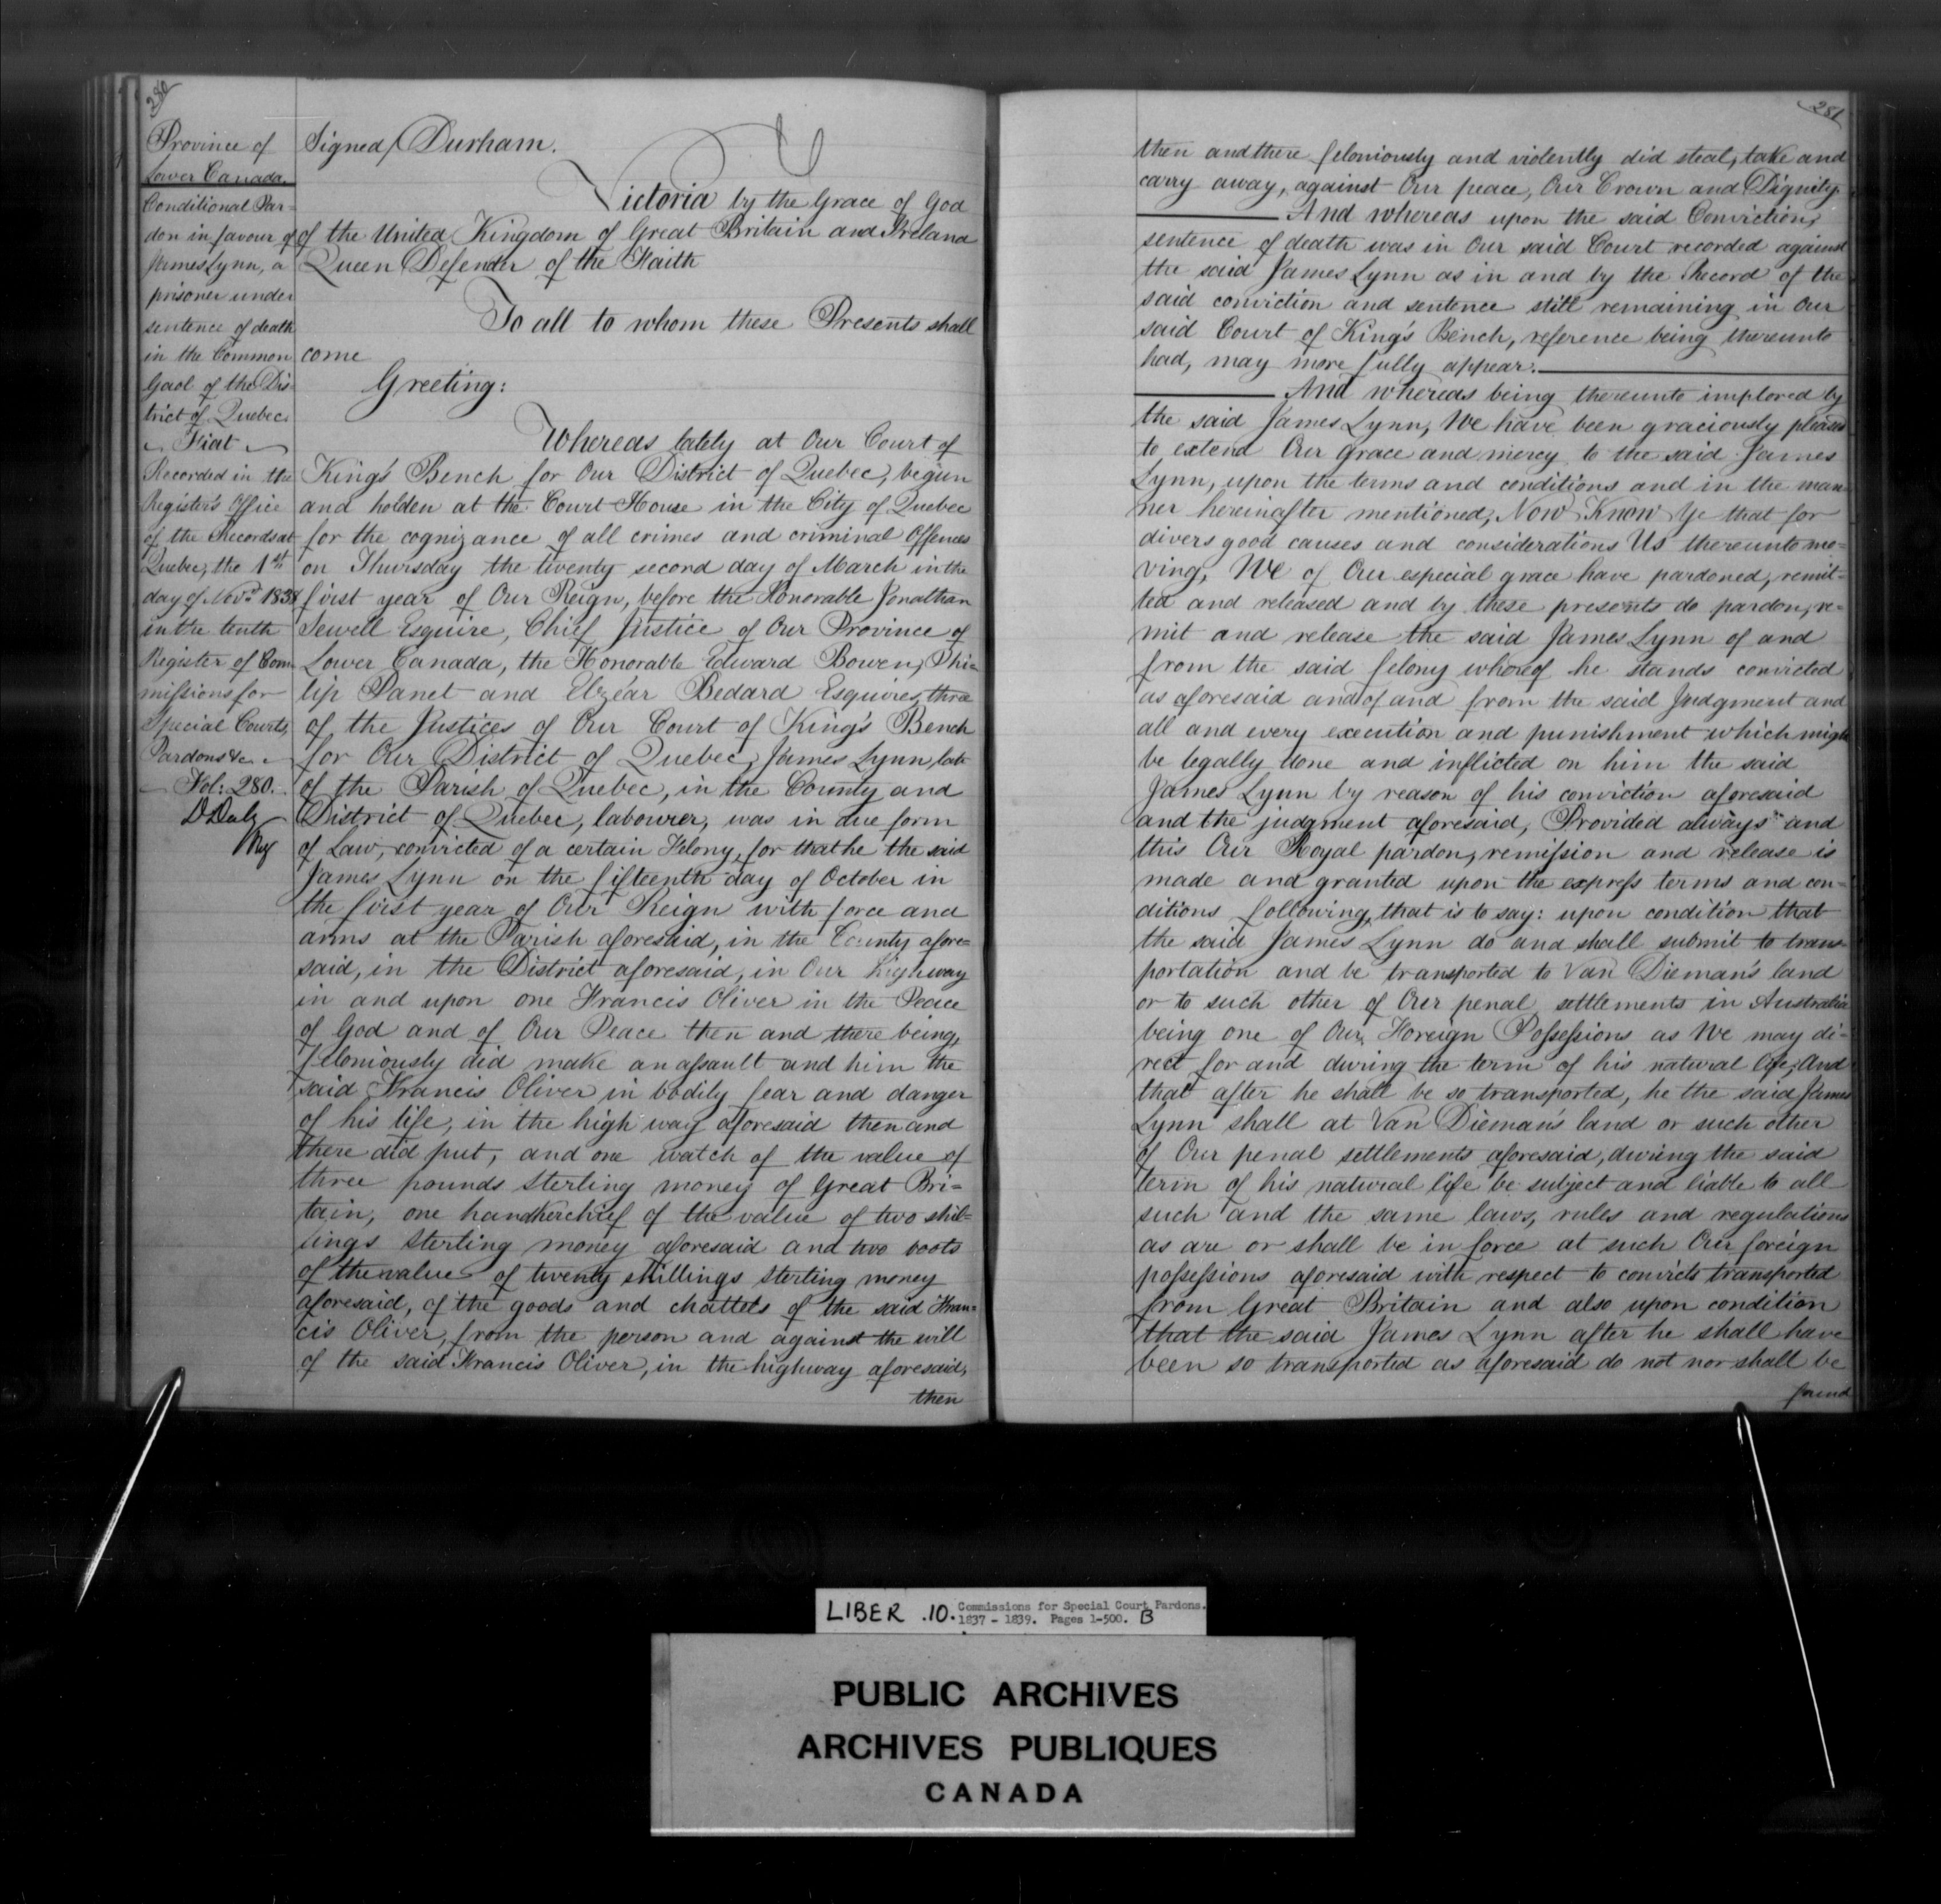 280
Province of
Lower Canada.
Conditional Par=
don in favour of
James Lynn, a
prisoner under
sentence of death
in the Common
Gaol of the Dis
trict of Quebec.
Fiat
Recorded in the
Register's Office
of the Records at
Quebec, the 1st
day of Novr. 1838
in the tenth
Register of Com
missions for
Special Courts,
Pardons &c.
Fol: 280.
D. Daly
Reg
Signed/ Durham.
Victoria by the Grace of God
of the United Kingdom of Great Britain and Ireland
Queen Defender of the Faith
To all to whom these Presents shall
come
Greeting:
Whereas lately at Our Court of
King's Bench for Our District of Quebec, begun
and holden at the Court House in the City of Quebec
for the cognizance of all crimes and criminal Offences
on Thursday the twenty second day of March in the
first year of Our Reign, before the Honorable Jonathan
Sewell Esquire, Chief Justice of Our Province of
Lower Canada, the Honorable Edward Bowen, Phi=
lip Panet and Elzéar Bedard Esquires, three
of the Justices of Our Court of King's Bench
for Our District of Quebec, James Lynn, late
of the Parish of Quebec, in the County and
District of Quebec, labourer, was in due form
of Law, convicted of a certain Felony, for that he the said
James Lynn on the fifteenth day of October in
the first year of Our Reign with force and
arms at the Parish aforesaid, in the County afore=
said, in the District aforesaid, in Our highway
in and upon one Francis Oliver in the Peace
of God and of Our Peace then and there being,
feloniously did make an assault and him the
said Francis Oliver in bodily fear and danger
of his life, in the high way aforesaid then and
there did put, and one watch of the value of
three pounds sterling money of Great Bri=
tain, one handkerchief of the value of two shil=
lings sterling money aforesaid and two boots
of the value of twenty shillings sterling money
aforesaid, of the goods and chattels of the said Fran=
cis Oliver, from the person and against the will
of the said Francis Oliver, in the highway aforesaid,
then
281
then and there feloniously and violently did steal, take and
carry away, against Our peace, Our Crown and Dignity.
And whereas upon the said Conviction,
sentence of death was in Our said Court recorded against
the said James Lynn as in and by the Record of the
said conviction and sentence still remaining in Our
said Court of King's Bench, reference being thereunto
had, may more fully appear.
And whereas being thereunto implored by
the said James Lynn, We have been graciously pleased
to extend Our grace and mercy to the said James
Lynn, upon the terms and conditions and in the man=
ner hereinafter mentioned, Now Know Ye that for
divers good causes and considerations Us thereunto mo=
ving, We of Our especial grace have pardoned, remit=
ted and released and by these presents do pardon, re=
mit and release the said James Lynn of and
from the said felony whereof he stands convicted
as aforesaid and of and from the said Judgment and
all and every execution and punishment which might
be legally done and inflicted on him the said
James Lynn by reason of his conviction aforesaid
and the judgment aforesaid, Provided always and
this Our Royal pardon, remission and release is
made and granted upon the express terms and con=
ditions following, that is to say: upon condition that
the said James Lynn do and shall submit to trans=
portation and be transported to Van Dieman's land
or to such other of Our penal settlements in Australia
being one of Our Foreign Possessions as We may di=
rect for and during the term of his natural life, And
that after he shall be so transported, he the said James
Lynn shall at Van Dieman's land or such other
of Our penal settlements aforesaid, during the said
term of his natural life be subject and liable to all
such and the same laws, rules and regulations
as are or shall be in force at such Our foreign
possessions aforesaid with respect to convicts transported
from Great Britain and also upon condition
that the said James Lynn after he shall have
been so transported as aforesaid do not nor shall be
found
LIBER .10. Commissions for Special Court Pardons.
1837 - 1839. Pages 1-500. B
PUBLIC ARCHIVES
ARCHIVES PUBLIQUES
CANADA